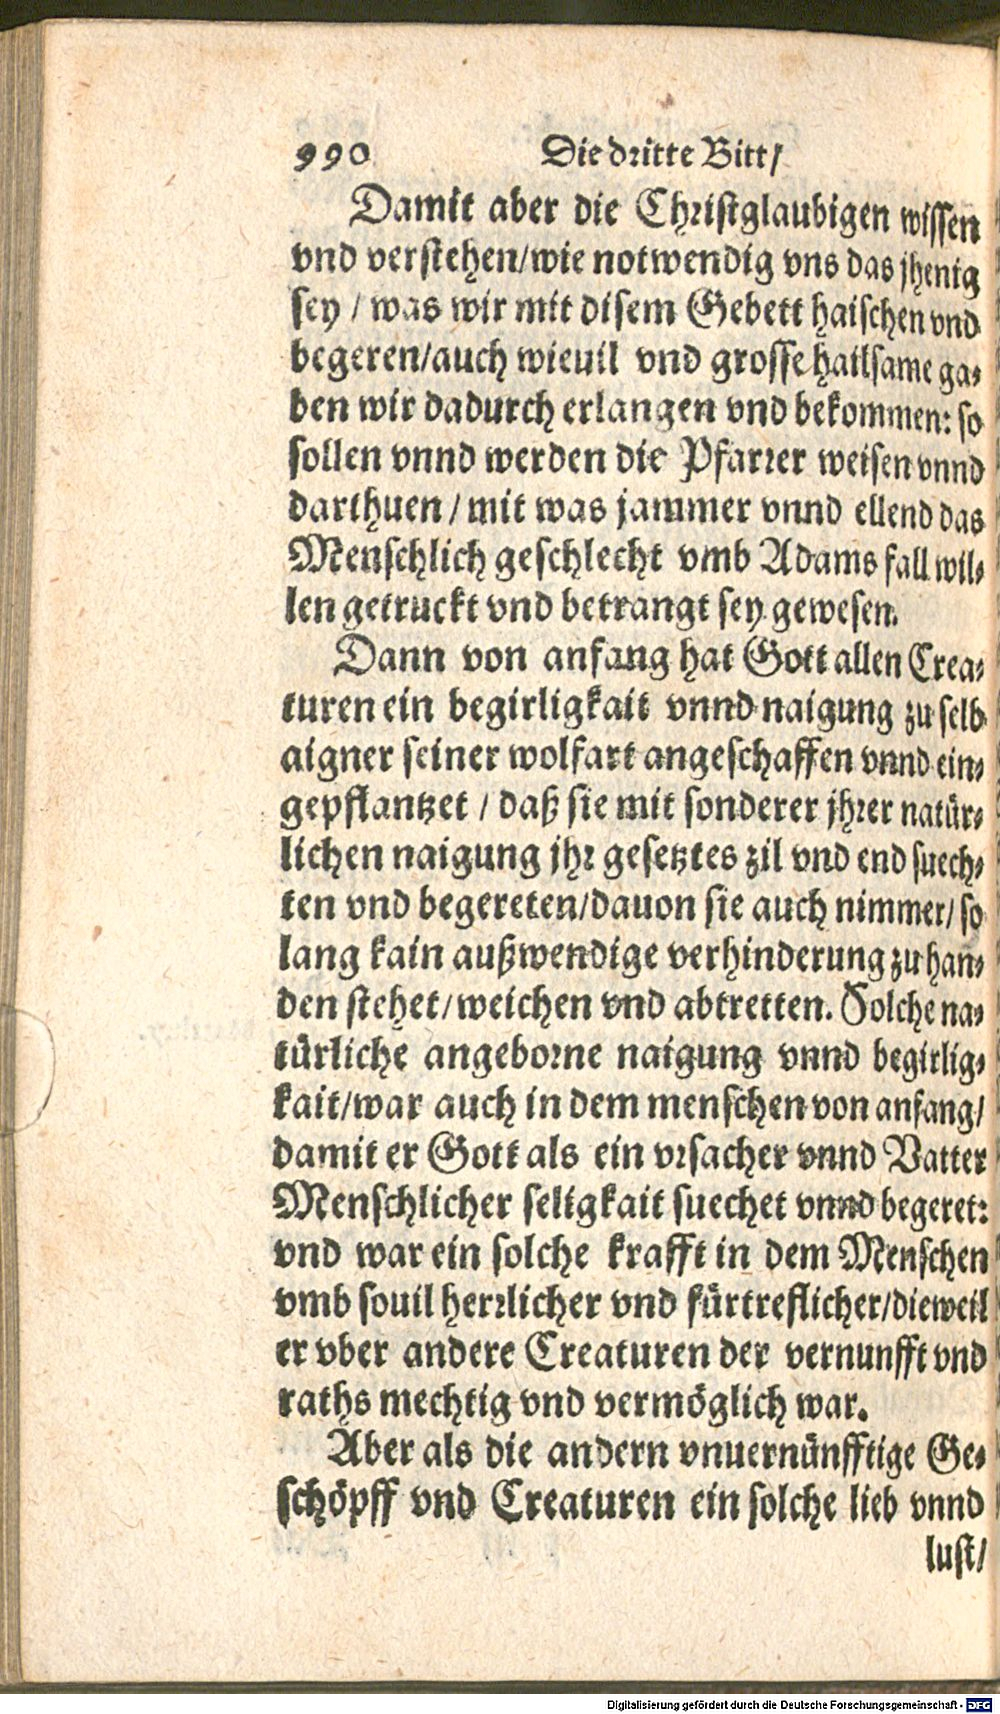 990 Die dritte Bitt/
Damit aber die Christglaubigen wissen
vnd verstehen/wie notwendig vns das jhenig
sey / was wir mit disem Gebett haischen vnd
begeren/auch wieuil vnd grosse hailsame ga-
ben wir dadurch erlangen vnd bekommen: so
sollen vnnd werden die Pfarrer weisen vnnd
darthuen / mit was jammer vnnd ellend das
Menschlich geschlecht vmb Adams fall wil-
len getruckt vnd betrangt sey gewesen.
Dann von anfang hat Gott allen Crea-
turen ein begirligkait vnnd naigung zu selb
aigner seiner wolfart angeschaffen vnnd ein-
gepflantzet / daß sie mit sonderer jhrer natür-
lichen naigung jhr gesetztes zil vnd end suech-
ten vnd begereten/dauon sie auch nimmer/ so
lang kain außwendige verhinderung zu han-
den stehet/weichen vnd abtretten. Solche na-
türliche angeborne naigung vnnd begirlig-
kait/war auch in dem menschen von anfang/
damit er Gott als ein vrsacher vnnd Vatter
Menschlicher seligkait suechet vnnd begeret:
vnd war ein solche krafft in dem Menschen
vmb souil herrlicher vnd fürtreflicher/dieweil
er vber andere Creaturen der vernunfft vnd
raths mechtig vnd vermöglich war.
Aber als die andern vnuernünfftige Ge-
schöpff vnd Creaturen ein solche lieb vnnd
lust/
Digitalisierung gefördert durch die Deutsche Forschungsgemeinschaft - DFG